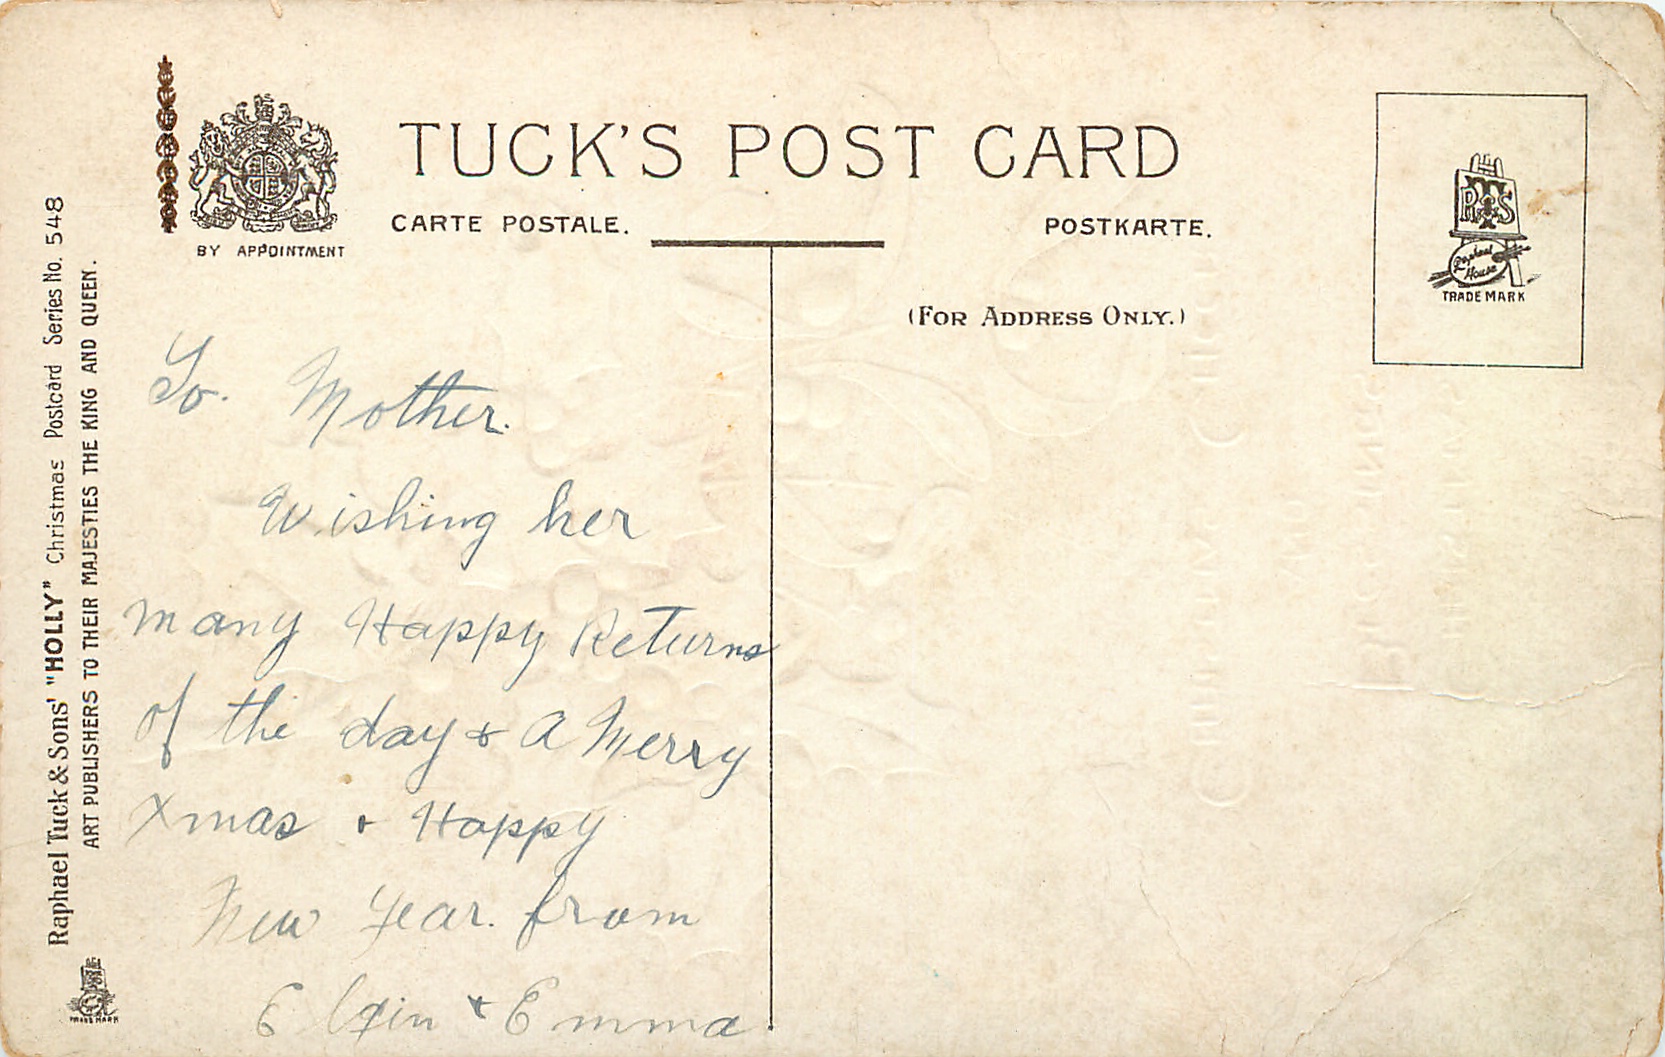 TUCK'S POST CARD
BY APPOINTMENT
CARTE POSTALE.
POSTKARTE.
(FOR ADDRESS ONLY.)
RTS
Raphael
House
TRADE MARK
Raphael Tuck & Sons' "HOLLY" Christmas Postcard Series No. 548
ART PUBLISHERS TO THEIR MAJESTIES THE KING AND QUEEN.
TRADE MARK
To. Mother.
Wishing her
many Happy Returns
of the day & A Merry
Xmas & Happy
New Year. from
& Emma